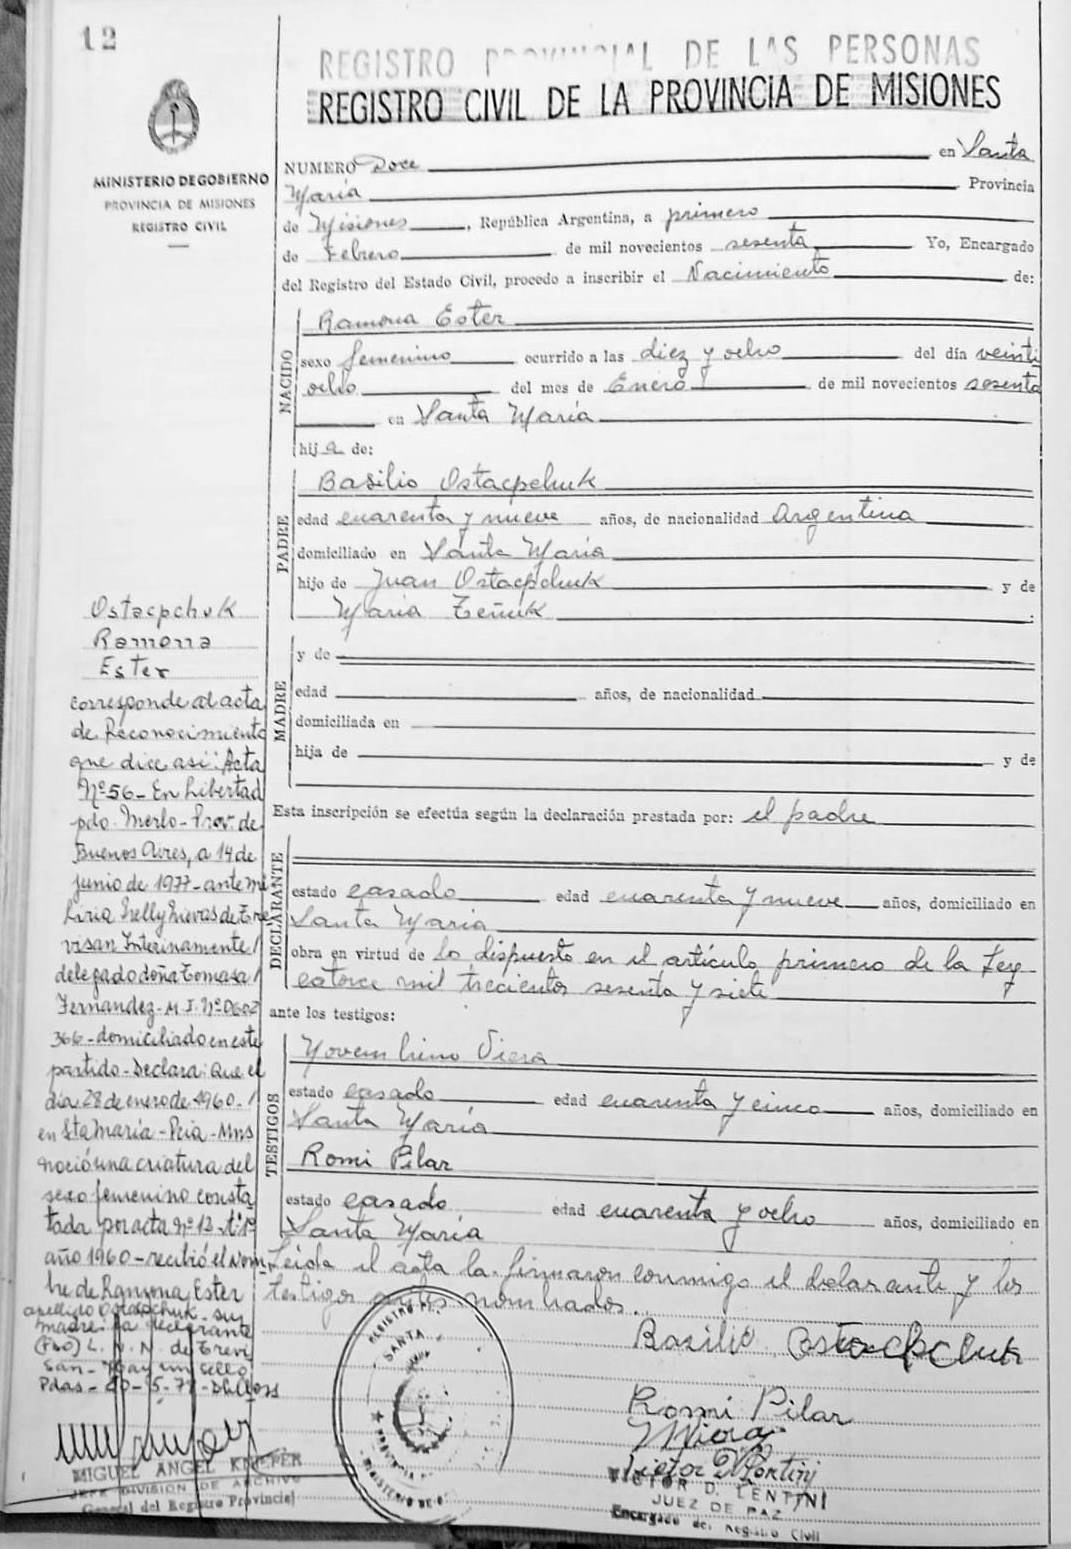 12
REGISTRO PROVINCIAL DE LAS PERSONAS
REGISTRO CIVIL DE LA PROVINCIA DE MISIONES
MINISTERIO DE GOBIERNO
PROVINCIA DE MISIONES
REGISTRO CIVIL
NUMERO Doce en Santa
María Provincia
de Misiones, República Argentina, a primero
de Febrero de mil novecientos sesenta Yo, Encargado
del Registro del Estado Civil, procedo a inscribir el Nacimiento de:
NACIDO
Ramona Ester
sexo femenino ocurrido a las diez y ocho del día veinti
ocho del mes de Enero de mil novecientos sesenta
en Santa María
hija de:
PADRE
Basilio Ostacpchuk
edad cuarenta y nueve años, de nacionalidad Argentina
domiciliado en Santa María
hijo de Juan Ostacpchuk y de
María Zeñuk
MADRE
y de
edad años, de nacionalidad
domiciliada en
hija de y de
Esta inscripción se efectúa según la declaración prestada por: el padre
DECLARANTE
estado casado edad cuarenta y nueve años, domiciliado en
Santa María
obra en virtud de lo dispuesto en el artículo primero de la Ley
catorce mil trecientos sesenta y siete
ante los testigos:
TESTIGOS
Viera
estado casado edad cuarenta y cinco años, domiciliado en
Santa María
Romi Pilar
estado casado edad cuarenta y ocho años, domiciliado en
Santa María
Leída el acta la firmaron conmigo el declarante y los
testigos antes nombrados.
Basilio Ostacpchuk
Romi Pilar
VICTOR D. LENTINI
JUEZ DE PAZ
Encargado del Registro Civil
REGISTRO
SANTA
PROVINCIA
MINISTERIO DE
Ostacpchuk
Ramona
Ester
corresponde al acta
de Reconocimiento
que dice asi: Acta
Nº 56 - En Libertad
pdo. Merlo - Prov. de
Buenos Aires, a 14 de
junio de 1977 - ante mi
Liria Nelly Nievas de Tre
visan Interinamente /
delegado doña Tomasa /
Fernandez - M.I. Nº 0602
366 - domiciliado en este
partido - Declara: Que el
dia 28 de enero de 1960 - /
en Sta Maria - Pcia - Mns
nació una criatura del
sexo femenino consta
tada por acta Nº 12 - tº 1º
año 1960 - recibió el nom
bre de Ramona Ester
apellido Ostacpchuk - su
madre la declarante
(Fdo) L. N. N. de Trevi
san - Hay un sello
MIGUEL ANGEL KNIEPER
JEFE DIVISION DE ARCHIVO
General del Registro Provincial